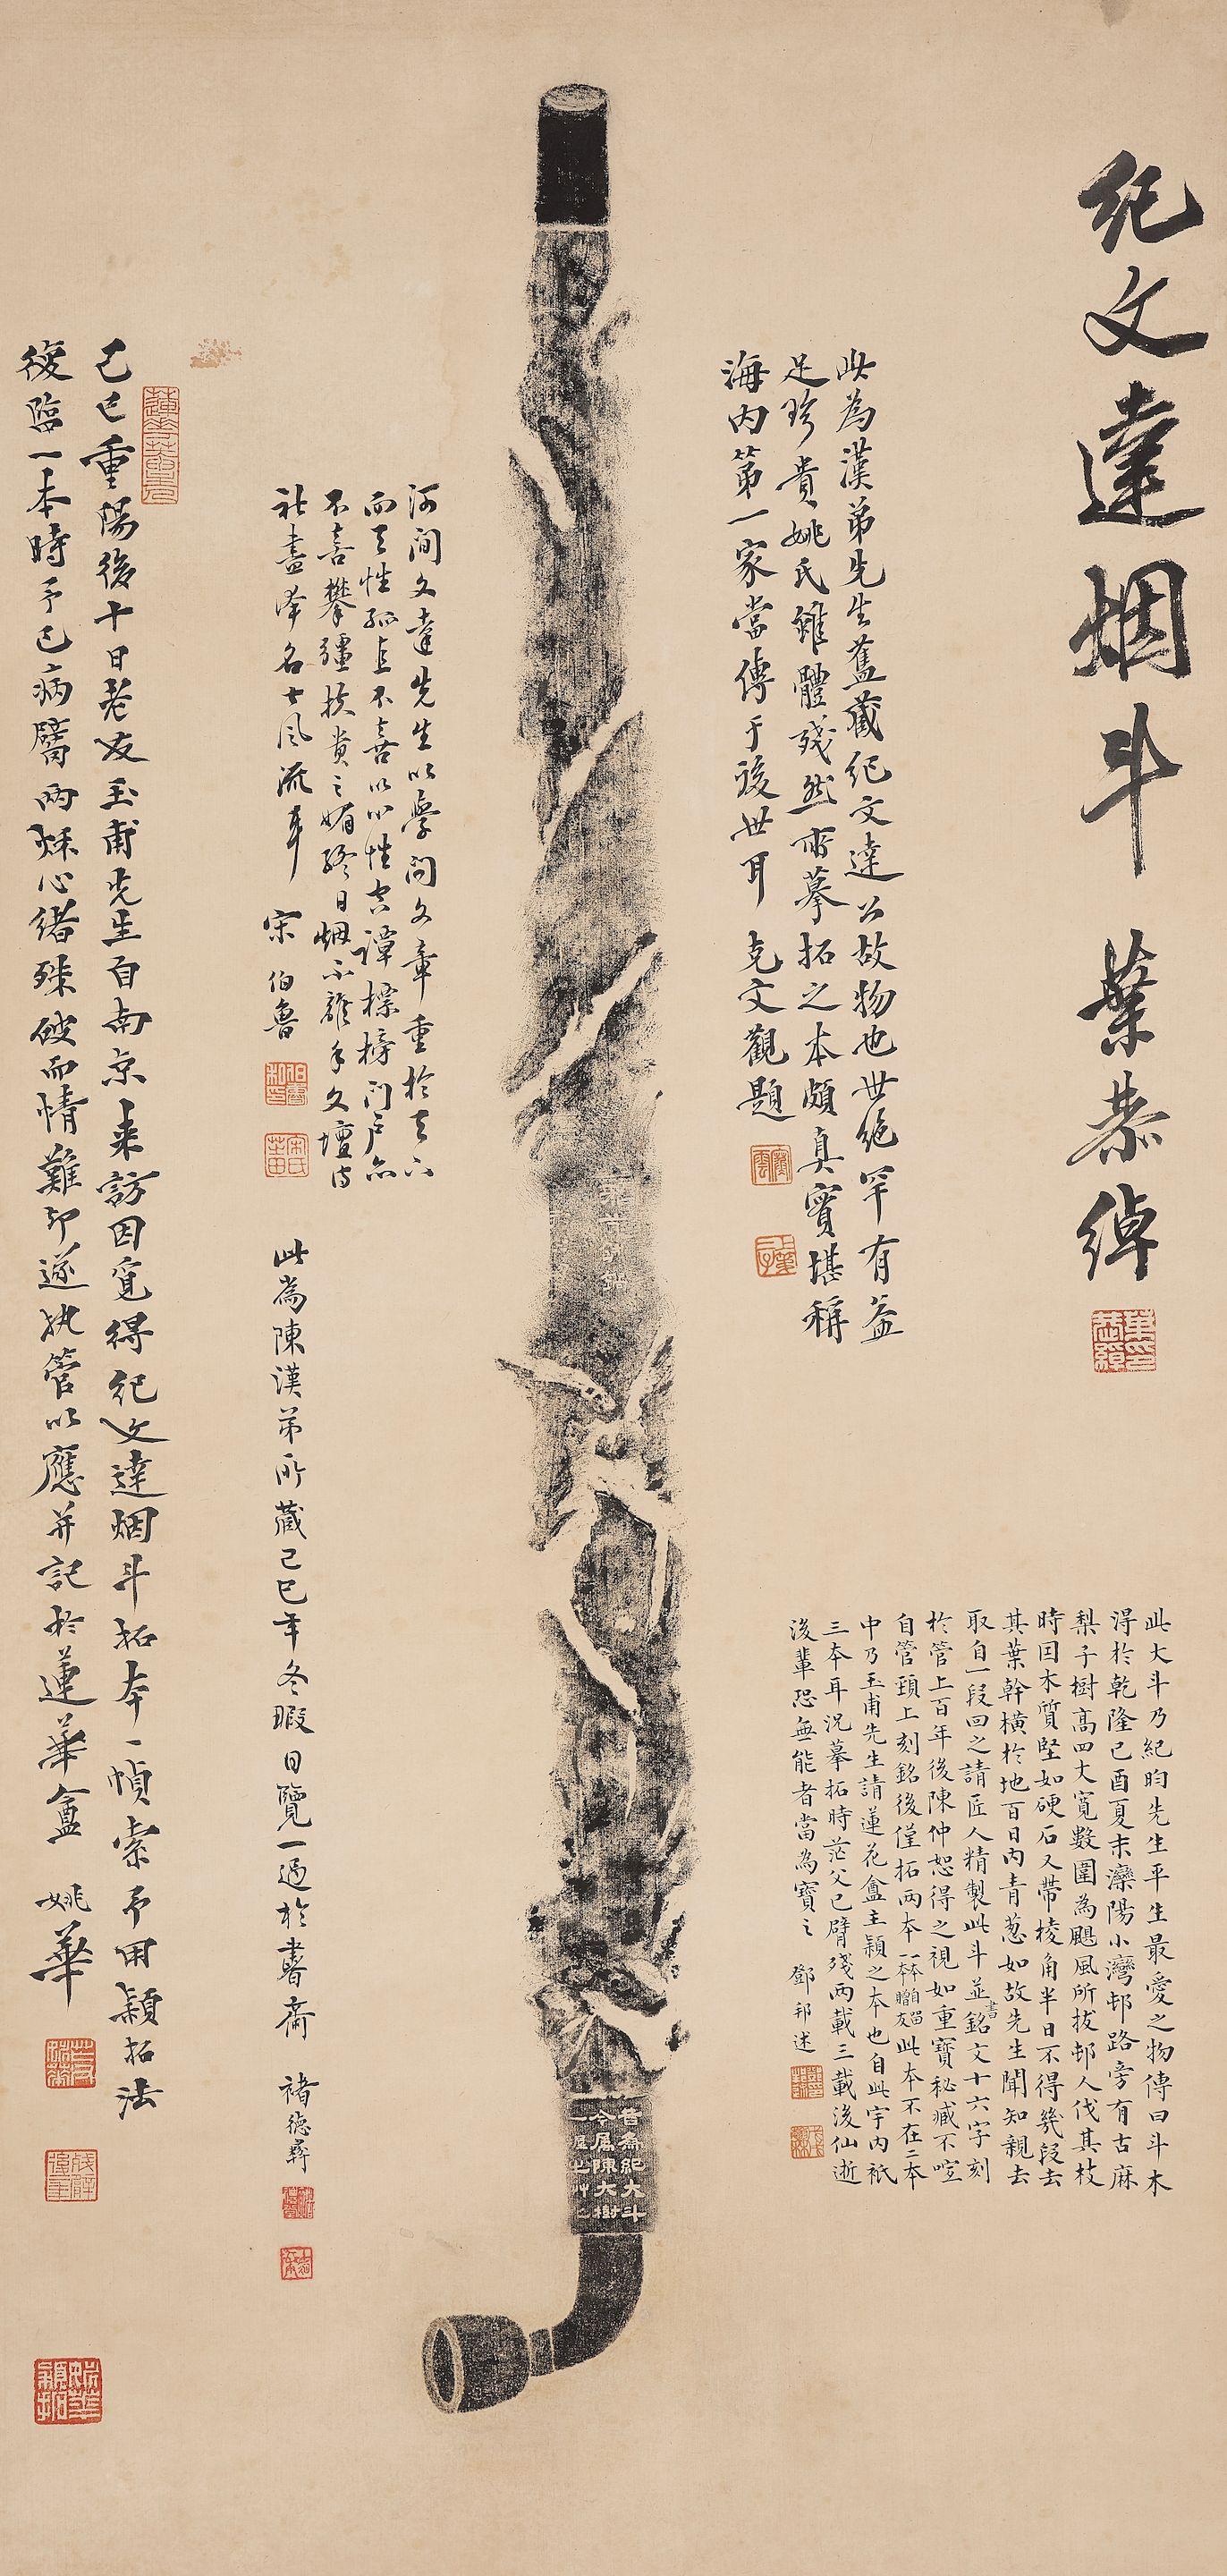 紀文達烟斗 葉恭綽
此為漢弟先生舊藏紀文達公故物也世絕罕有益
足珍貴姚氏雖體殘然所摹拓之本頗真實堪稱
海内第一家當傳于後世耳 克文觀題
此大斗乃紀昀先生平生最愛之物傳曰斗木
得於乾隆己酉夏末灤陽小灣邨路旁有古麻
梨子樹高四丈寬數圍為颶風所拔邨人伐其枝
時因木質堅如硬石又帶棱角半日不得幾段去
其葉幹橫於地百日內青葱如故先生聞知親去
取自一段回之請匠人精製此斗並書銘文十六字刻
於管上百年後陳仲恕得之視如重寶秘藏不啻
自管頸上刻銘後僅拓兩本一本自留一本贈友此本不在二本
中乃玉甫先生請蓮花盦主穎之本也自此宇內祇
三本耳況摹拓時茫父已臂殘兩載三載後仙逝
後輩恐無能者當為寶之 鄧邦述
昔為紀大斗
今屬陳大樹
河間文達先生以學問文章重於天下
而天性孤直不喜以心性空譚標榜門戶亦
不喜攀疆扶貴之媚終日烟不離手文壇詩
社盡準名士風流事 宋伯魯
此為陳漢弟所藏己巳年冬暇日覽一過於書齋 褚德彝
己巳重陽後十日老友玉甫先生自南京来訪因覓得紀文達烟斗拓本一幀索予用穎拓法
復臨一本時予已病臂兩秝心緒殊破而情難却遂執管以應并記於蓮華盦 姚華